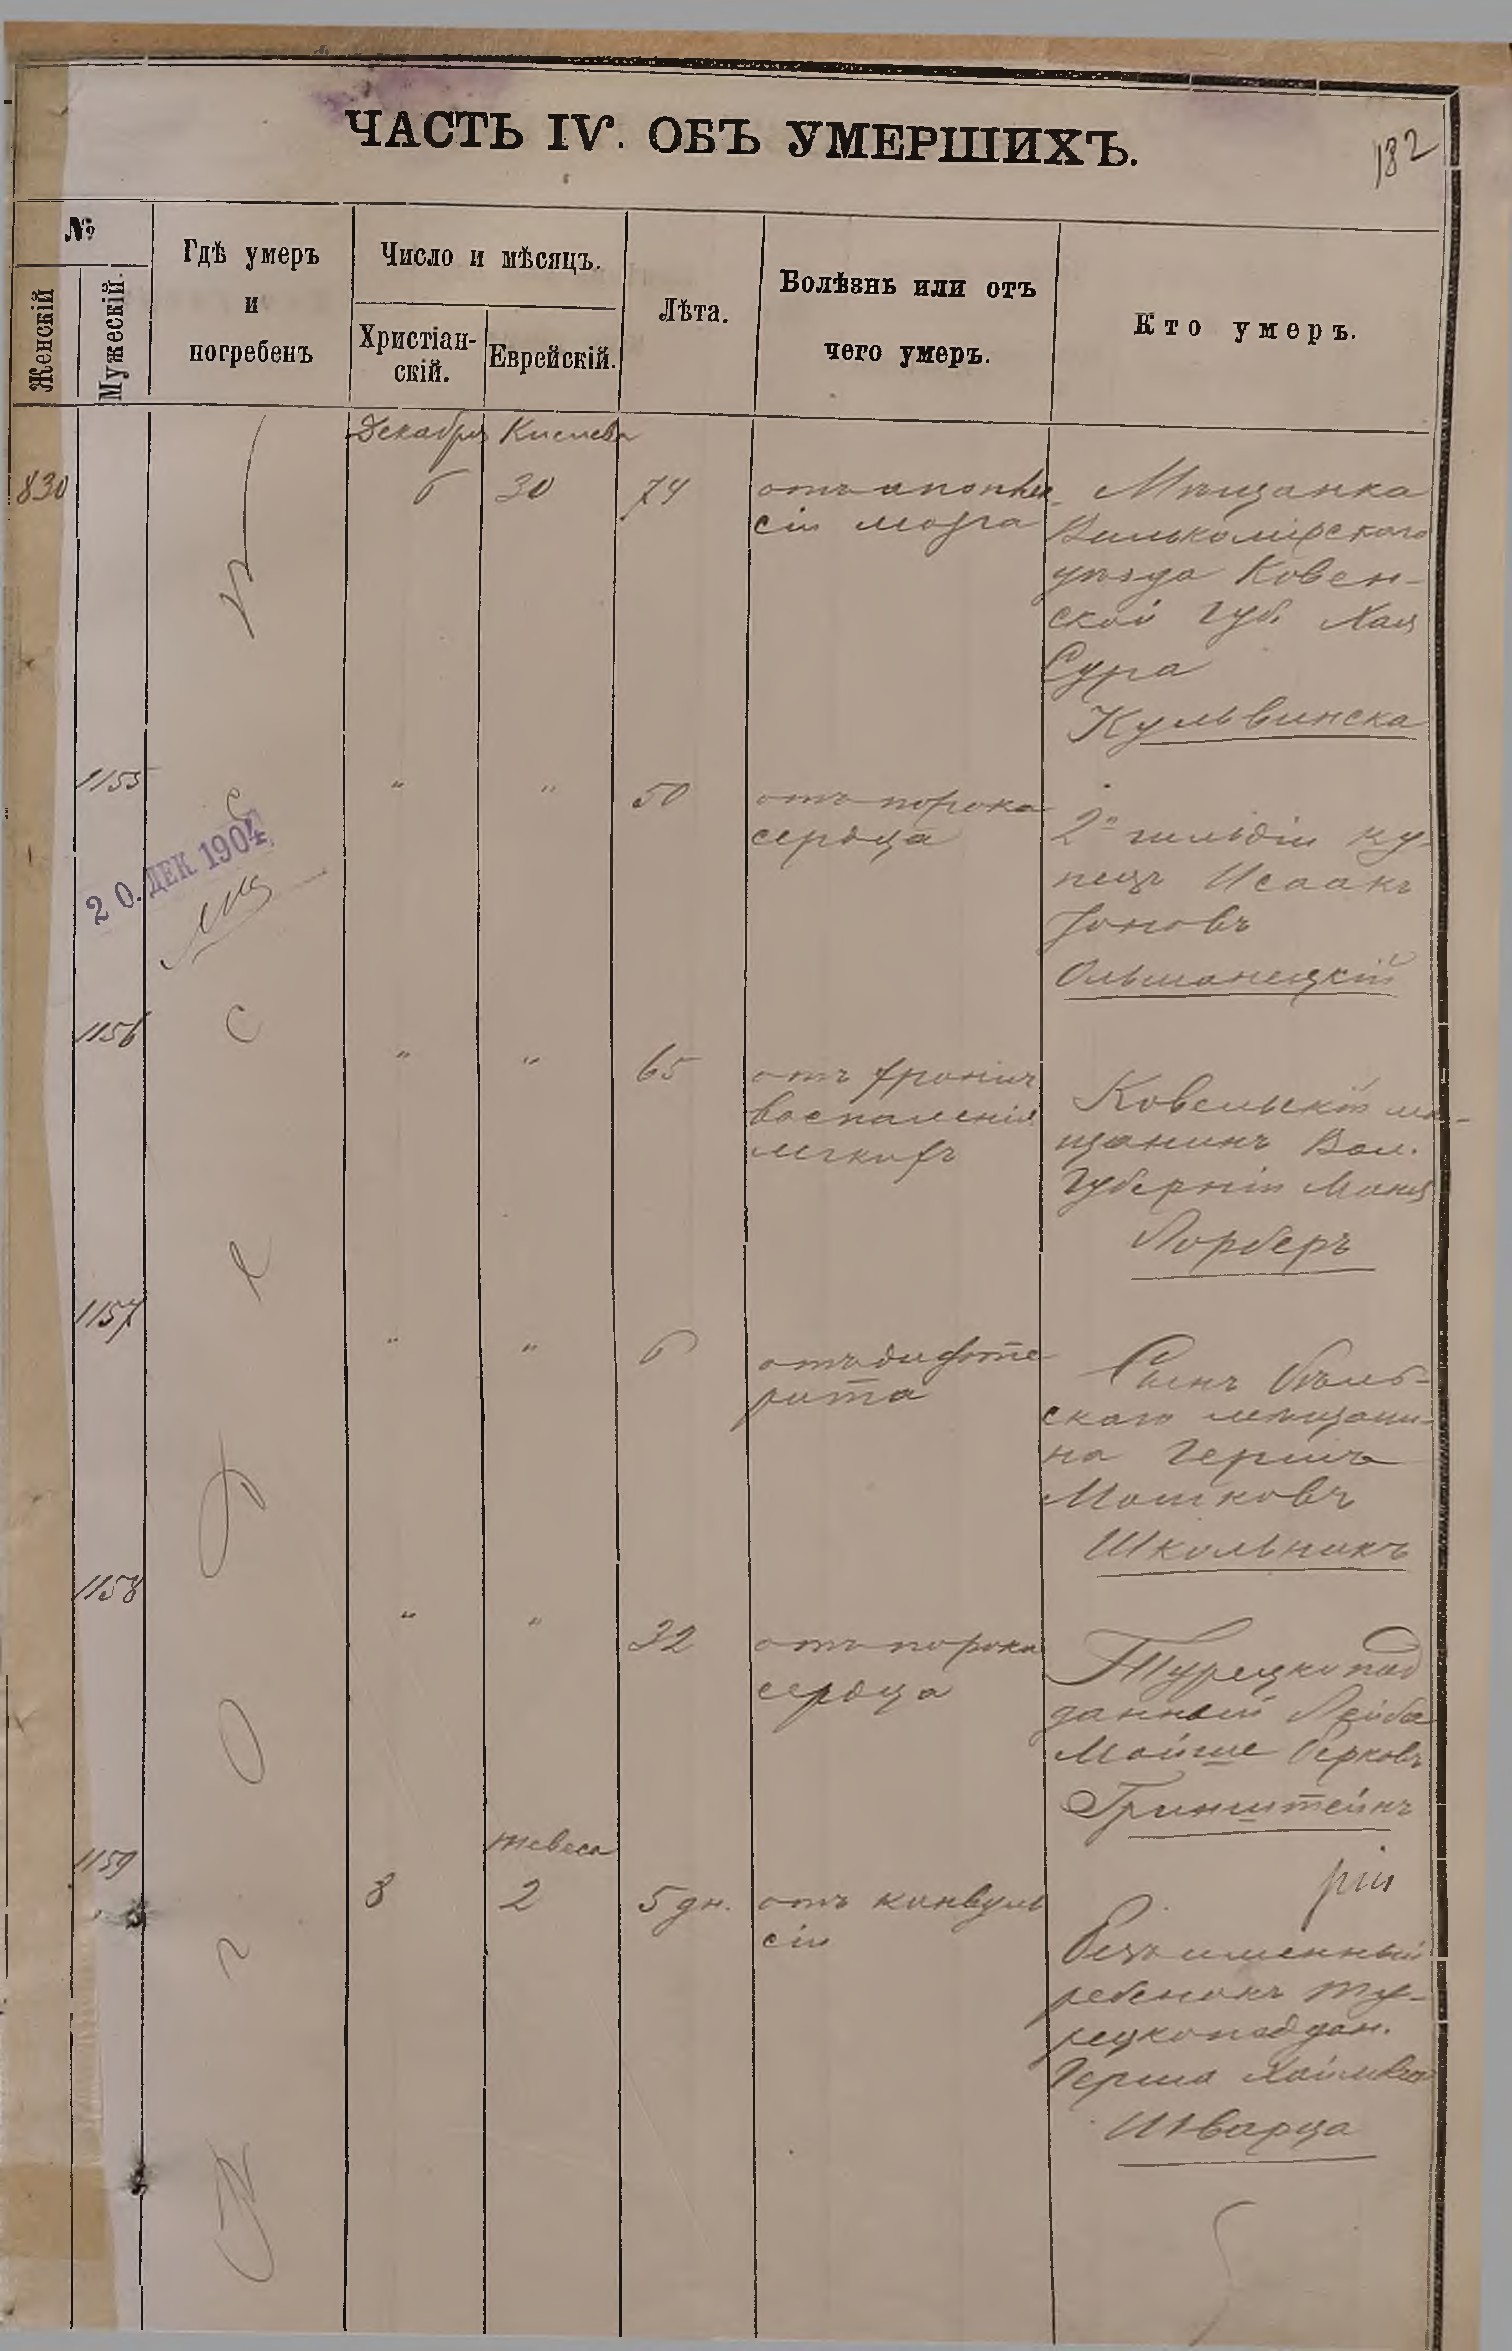 ЧАСТЬ IV. ОБЪ УМЕРШИХЪ.
182
№
Женскій
Мужескій.
Гдѣ умеръ
и
погребенъ
Число и мѣсяцъ.
Христіан-
скій.
Еврейскій.
Лѣта.
Болѣзнь или отъ
чего умеръ.
Кто умеръ.
Декабря Кислева
830
6 30 74
отъ апоплек
сіи мозга
Мѣщанка
Вилькомірскаго
уѣзда Ковен-
ской губ. Хая
Сура
Кульвинска
1155
" " 50
отъ порока
сердца
2й гильдіи ку-
пецъ Исаакъ
Ольшанецкій
20. ДЕК 1904
1156
" " 65
отъ хронич.
воспаленія
легкихъ
Ковельскій мѣ-
щанинъ Вол.
Губерніи
Лорберъ
1157
" " 6
отъ дифте
рита
Сынъ Бѣль-
скаго мѣщани-
на Гершъ
Мошковъ
Школьникъ
1158
" " 32
отъ порока
сердца
Турецкопод
данный Лейба
Мойше Берковъ
Гринштейнъ
1159
Тевеса
8 2 5 дн.
отъ конвуль
сіи
Безъименный
ребенокъ ту-
рецкоподдан.
Герша
Шварца